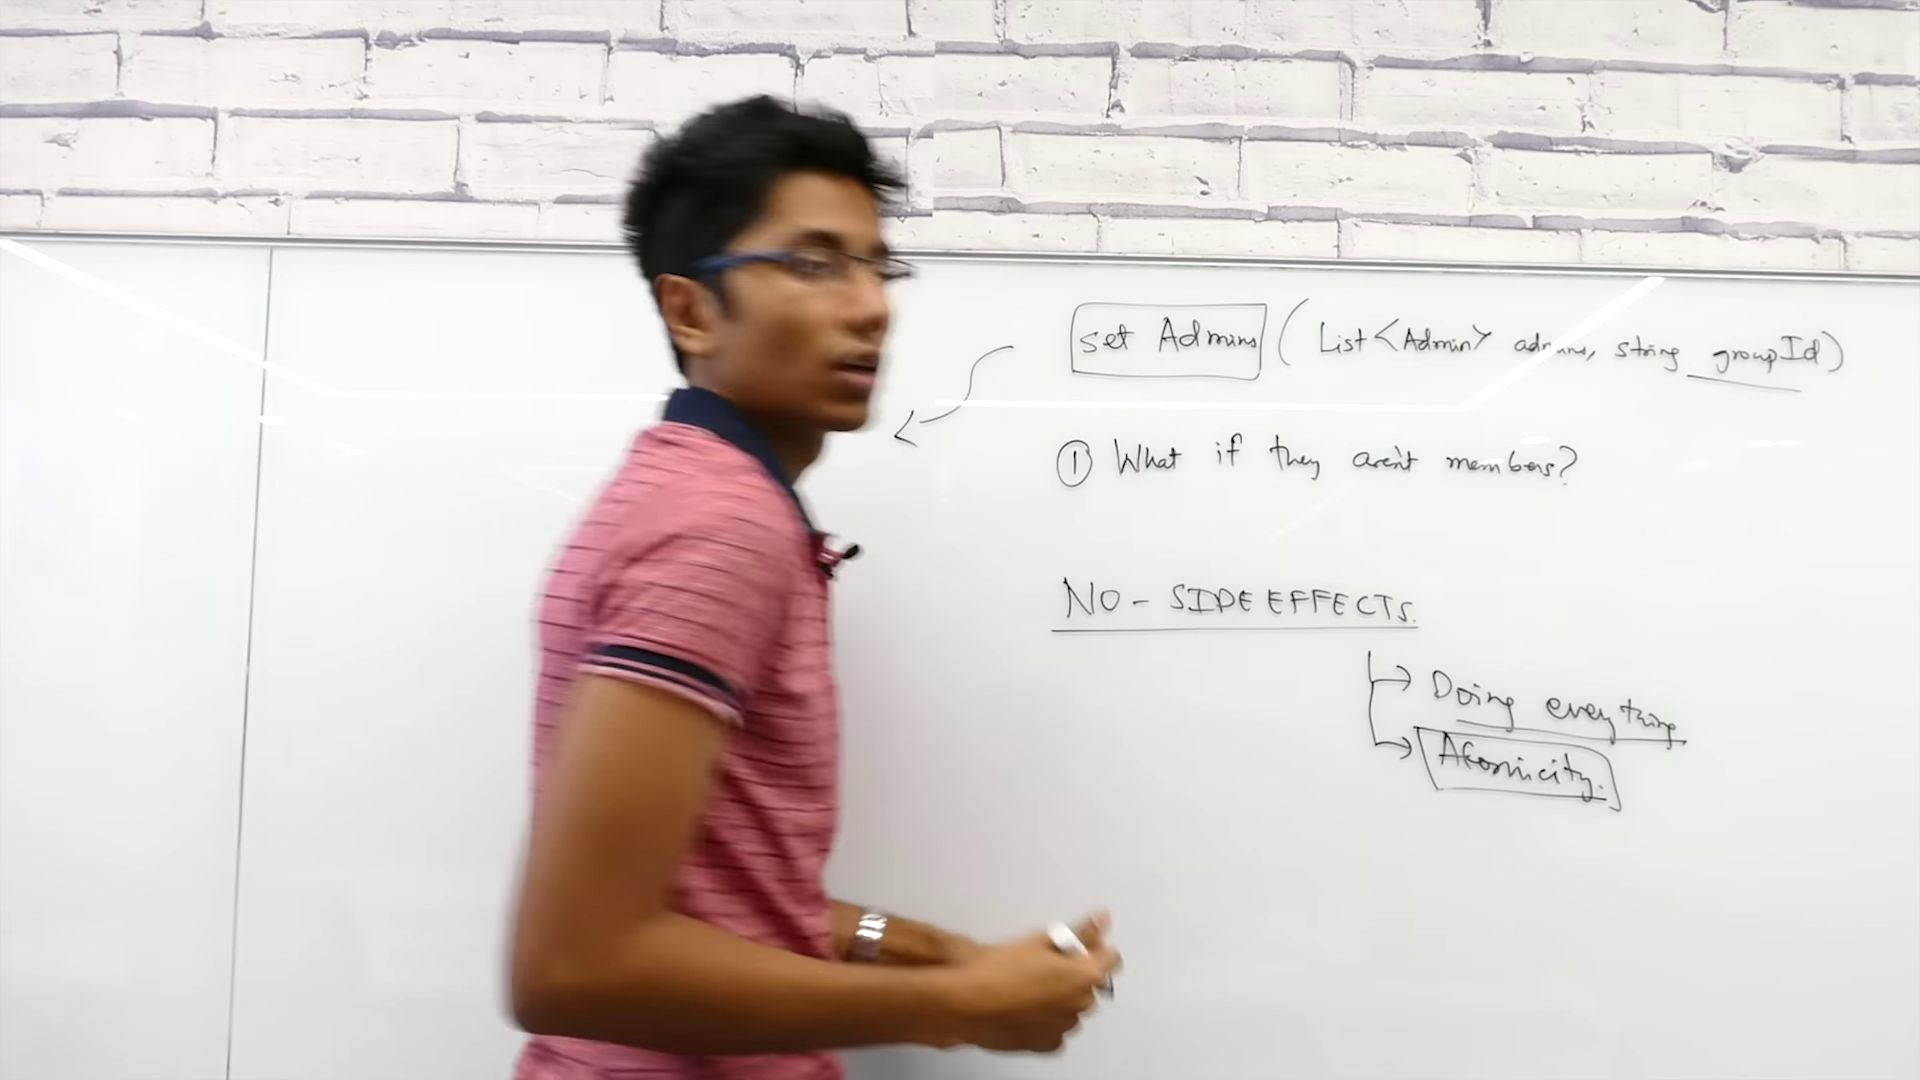 set Admins ( List<Admin> admins, string groupId)
① What if they aren't members?
NO - SIDE EFFECTS.
Doing everything
Atomicity.